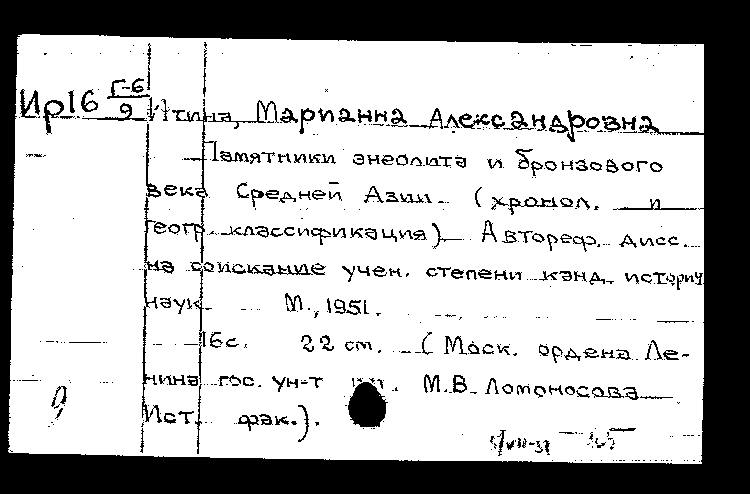 Ир16 Г-6/9 Итина, Марианна Александровна
Памятники энеолита и бронзового
века Средней Азии. (хронол. и
геогр. классификация). Автореф. дисс.
на соискание учен. степени канд. историч.
наук. М., 1951.
16 с. 22 см. (Моск. ордена Ле-
нина гос. ун-т им. М.В. Ломоносова
Ист. фак.).